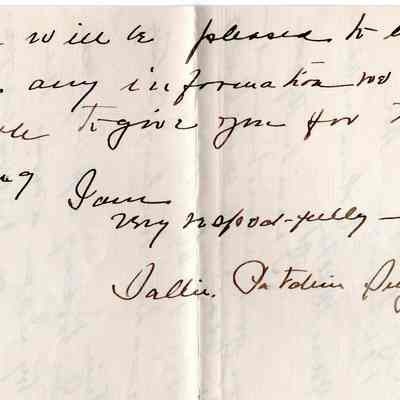 will be pleased to
any information we
to give you for
I am
very respect-fully —
Sallie